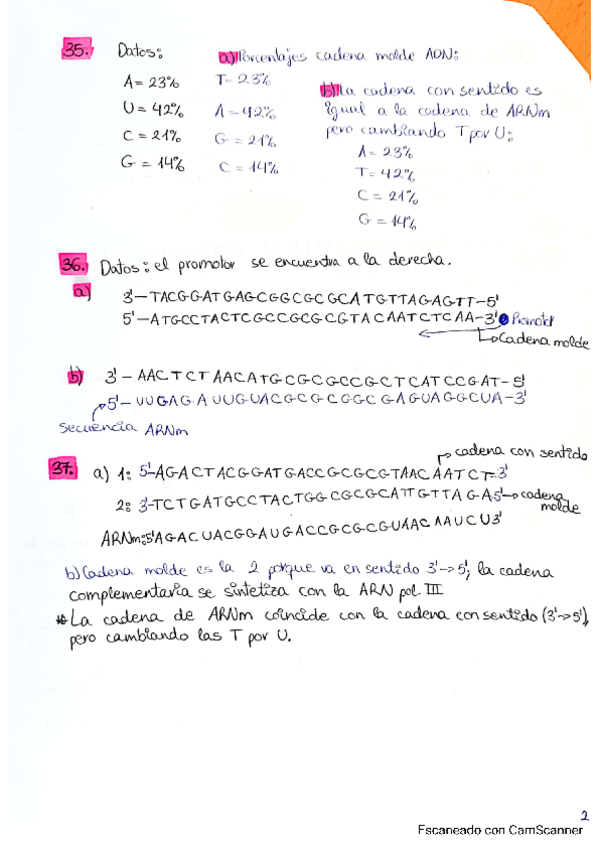 35. Datos:
A = 23%
U = 42%
C = 21%
G = 14%
a) Porcentajes cadena molde ADN:
T = 23%
A = 42%
G = 21%
C = 14%
b) La cadena con sentido es
igual a la cadena de ARNm
pero cambiando T por U:
A = 23%
T = 42%
C = 21%
G = 14%
36. Datos: el promotor se encuentra a la derecha.
a) 3'-TACGGATGAGCGGCGCGCATGTTAGAGTT-5'
5'-ATGCCTACTCGCCGCGCGTACAATCTCAA-3' Promotor
Cadena molde
b) 3'-AACTCTAACATGCGCGCCGCTCATCCGAT-5'
5'-UUGAGAUUGUACGCGCGGCGAGUAGGCUA-3'
secuencia ARNm
37. cadena con sentido
a) 1: 5'-AGACTACGGATGACCGCGCGTAACAATCT-3'
2: 3'-TCTGATGCCTACTGGCGCGCATTGTTAGA5' cadena
molde
ARNm: 5'AGACUACGGAUGACCGCGCGUAACAAUCU3'
b) Cadena molde es la 2 porque va en sentido 3'->5', la cadena
complementaria se sintetiza con la ARN pol. III
* La cadena de ARNm coincide con la cadena con sentido (3'->5'),
pero cambiando las T por U.
2
Escaneado con CamScanner